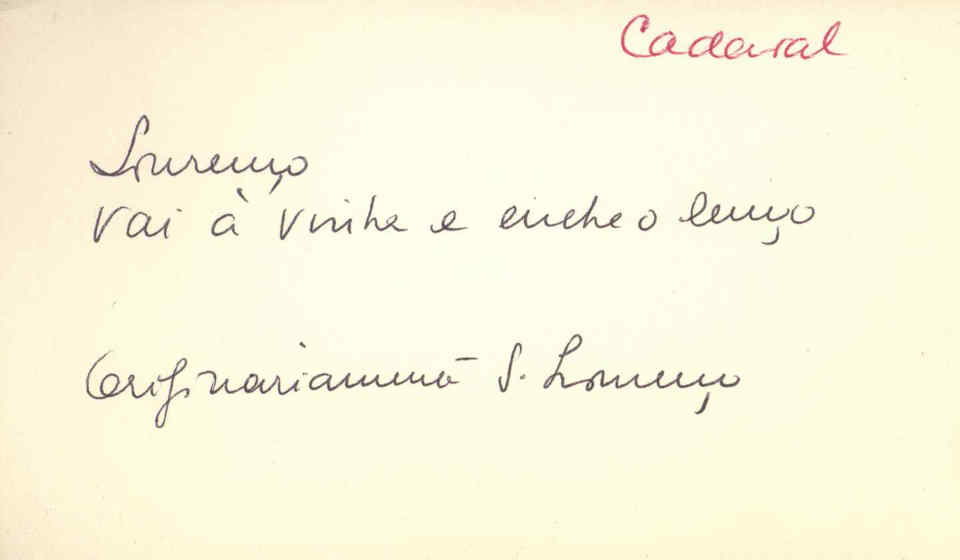 Cadaval
Lourenço
Vai à vinha e enche o lenço
Originariamente S. Lourenço